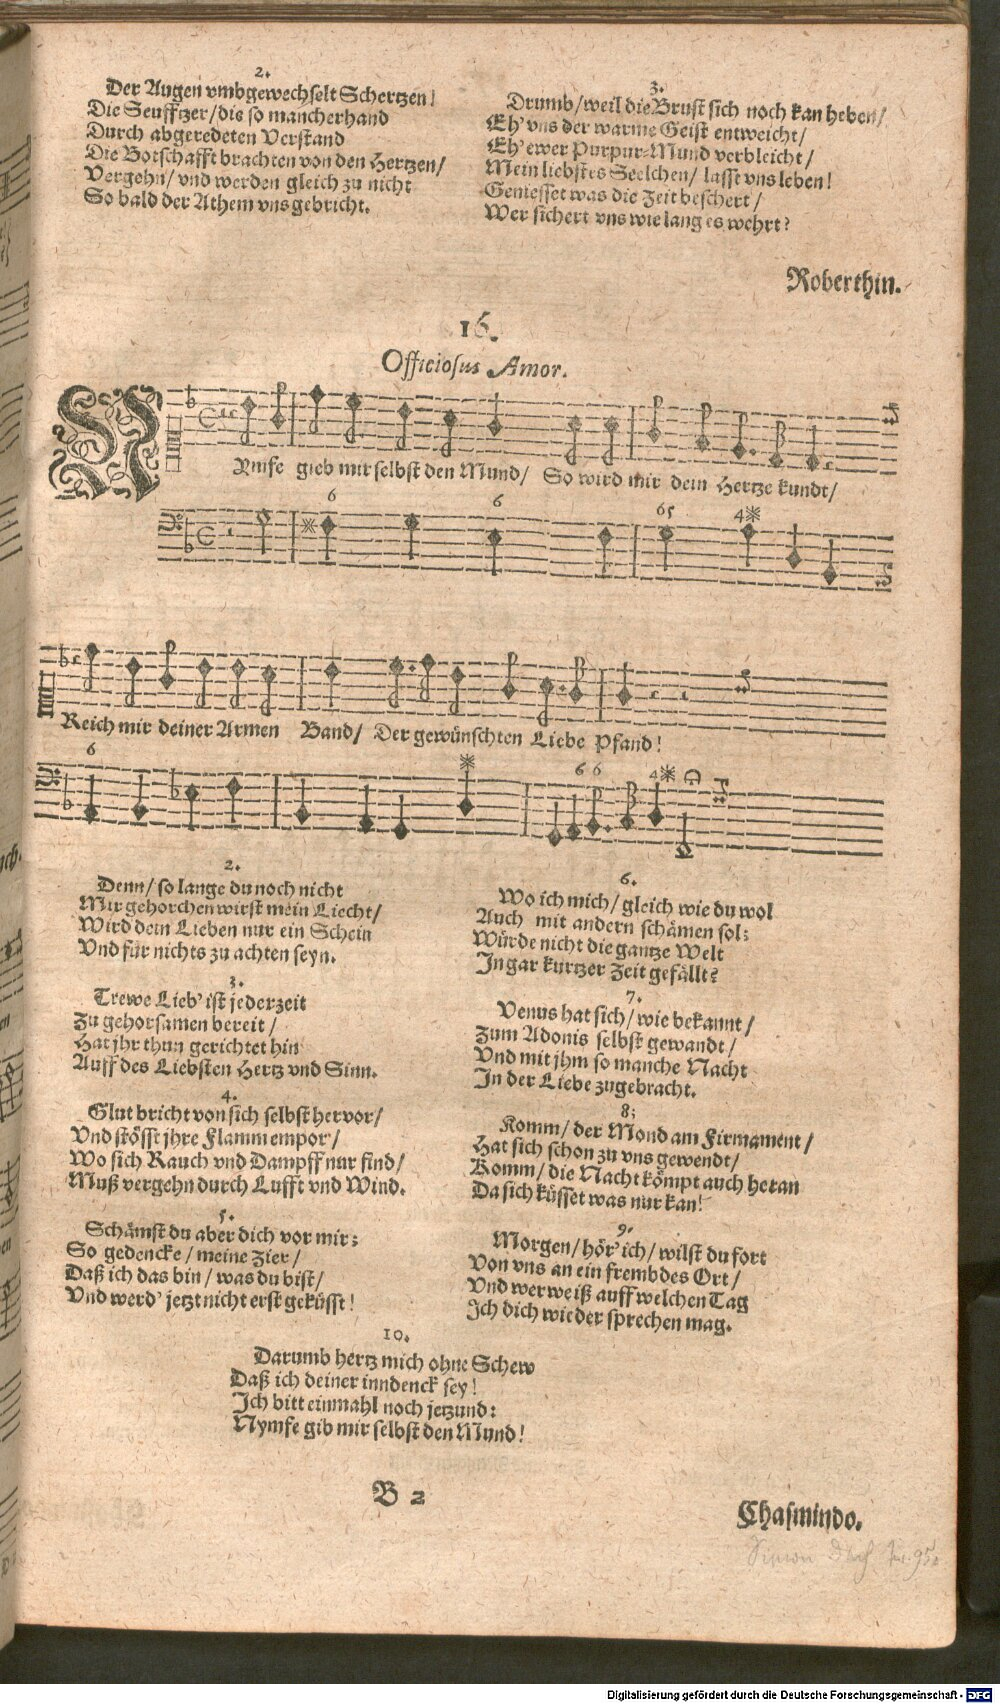 2.
Der Augen vmbgewechselt Schertzen!
Die Seufftzer/die so mancherhand
Durch abgeredeten Verstand
Die Botschafft brachten von den Hertzen/
Vergehn/ vnd werden gleich zu nicht
So bald der Athem vns gebricht.
3.
Drumb/weil die Brust sich noch kan heben/
Eh' vns der warme Geist entweicht/
Eh' ewer Purpur-Mund verbleicht/
Mein liebstes Seelchen/ lasst vns leben!
Geniesset was die Zeit beschert/
Wer sichert vns wie lang es wehrt?
Roberthin.
16.
Officiosus Amor.
NYmfe gieb mir selbst den Mund/ So wird mir dein Hertze kundt/
6 6 65 4
Reich mir deiner Armen Band/ Der gewünschten Liebe Pfand!
6 6 6 4
2.
Denn/ so lange du noch nicht
Mir gehorchen wirst mein Liecht/
Wird dein Lieben nur ein Schein
Vnd für nichts zu achten seyn.
3.
Trewe Lieb' ist jederzeit
Zu gehorsamen bereit/
Hat jhr thun gerichtet hin
Auff des Liebsten Hertz vnd Sinn.
4.
Glut bricht von sich selbst hervor/
Vnd stösst jhre Flamm empor/
Wo sich Rauch vnd Dampff nur find/
Muß vergehn durch Lufft vnd Wind.
5.
Schämst du aber dich vor mir;
So gedencke/ meine Zier/
Daß ich das bin/ was du bist/
Vnd werd' jetzt nicht erst geküsst!
6.
Wo ich mich/ gleich wie du wol
Auch mit andern schämen sol;
Würde nicht die gantze Welt
In gar kurtzer Zeit gefällt?
7.
Venus hat sich/ wie bekannt/
Zum Adonis selbst gewandt/
Vnd mit jhm so manche Nacht
In der Liebe zugebracht.
8;
Komm/ der Mond am Firmament/
Hat sich schon zu vns gewendt/
Komm/ die Nacht kömpt auch heran
Da sich küsset was nur kan!
9.
Morgen/ hör' ich/ wilst du fort
Von vns an ein frembdes Ort/
Vnd wer weiß auff welchen Tag
Ich dich wieder sprechen mag.
10.
Darumb hertz mich ohne Schew
Daß ich deiner inndenck sey!
Ich bitt einmahl noch jetzund:
Nymfe gib mir selbst den Mund!
B 2
Chasmindo.
Simon Dach
Digitalisierung gefördert durch die Deutsche Forschungsgemeinschaft - DFG